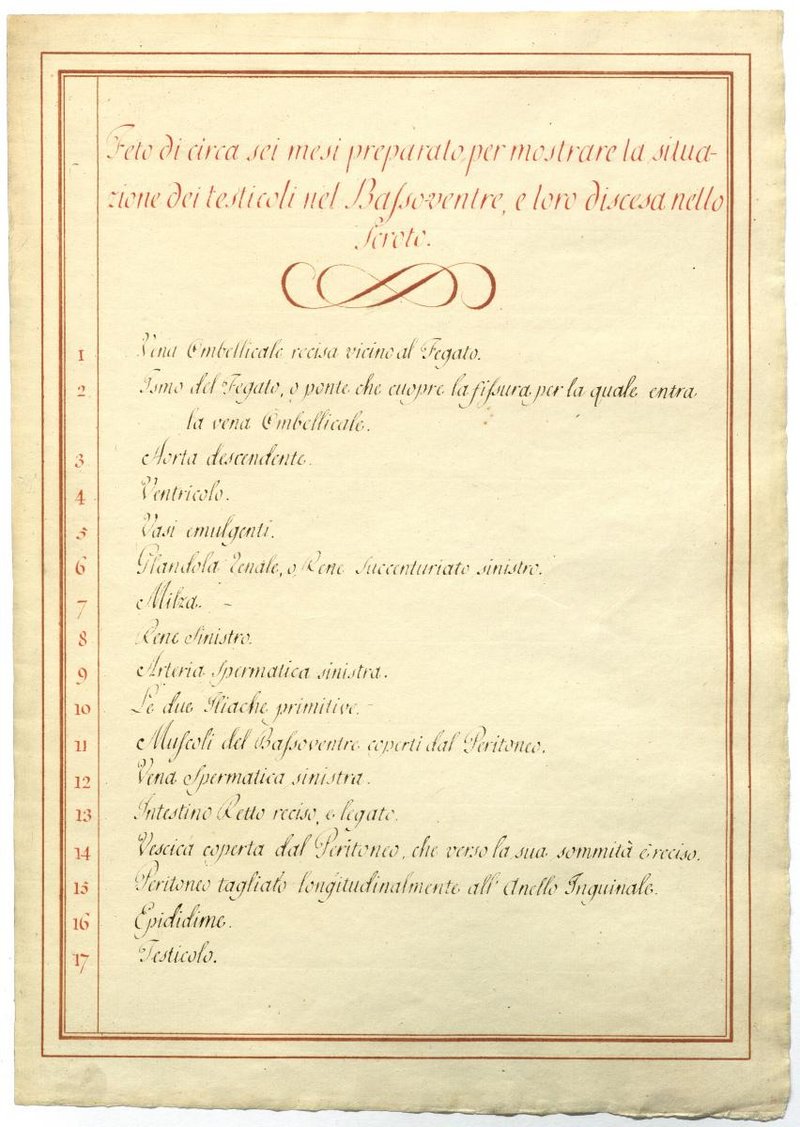 Feto di circa sei mesi preparato, per mostrare la situa-
zione dei testicoli nel Baſsoventre, e loro discesa nello
Scroto.
1 Vena Ombellicale recisa vicino al Fegato.
2 Ismo del Fegato, o ponte che cuopre la fiſsura per la quale entra
la vena Ombellicale.
3 Aorta descendente.
4 Ventricolo.
5 Vasi emulgenti.
6 Glandola Renale, o Rene Succenturiato sinistro.
7 Milza. -
8 Rene Sinistro.
9 Arteria Spermatica sinistra.
10 Le due Iliache primitive.
11 Muſcoli del Baſsoventre coperti dal Peritoneo.
12 Vena Spermatica sinistra.
13 Intestino Retto reciso, e legato.
14 Vescica coperta dal Peritoneo, che verso la sua sommità è reciso.
15 Peritoneo tagliato longitudinalmente all' Anello Inguinale.
16 Epididime.
17 Testicolo.